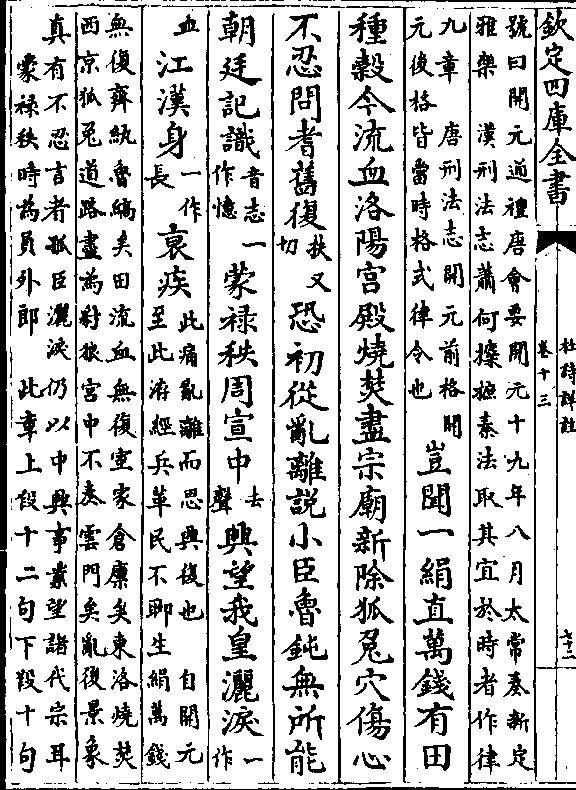 欽定四庫全書
杜詩詳註
卷十三
號曰開元通禮唐會要開元十九年八月太常奏新定
雅樂 漢刑法志蕭何攈摭秦法取其宜於時者作律
九章 唐刑法志開元前格開
元後格皆當時格式律令也
豈聞一絹直萬錢有田
種穀今流血洛陽宮殿燒焚盡宗廟新除狐兔穴傷心
不忍問耆舊復扶又切恐初從亂離說小臣魯鈍無所能
朝廷記識音志一作憶蒙祿秩周宣中去聲興望我皇灑淚一作
血江漢身一作長衰疾此痛亂離而思興復也 自開元
至此洊經兵革民不聊生絹萬錢
無復齊紈魯縞矣田流血無復室家倉廩矣東洛燒焚
西京狐兔道路盡為豺狼宮中不奏雲門矣亂後景象
真有不忍言者孤臣灑淚仍以中興事業望諸代宗耳
蒙祿秩時為員外郎 此章上段十二句下段十句